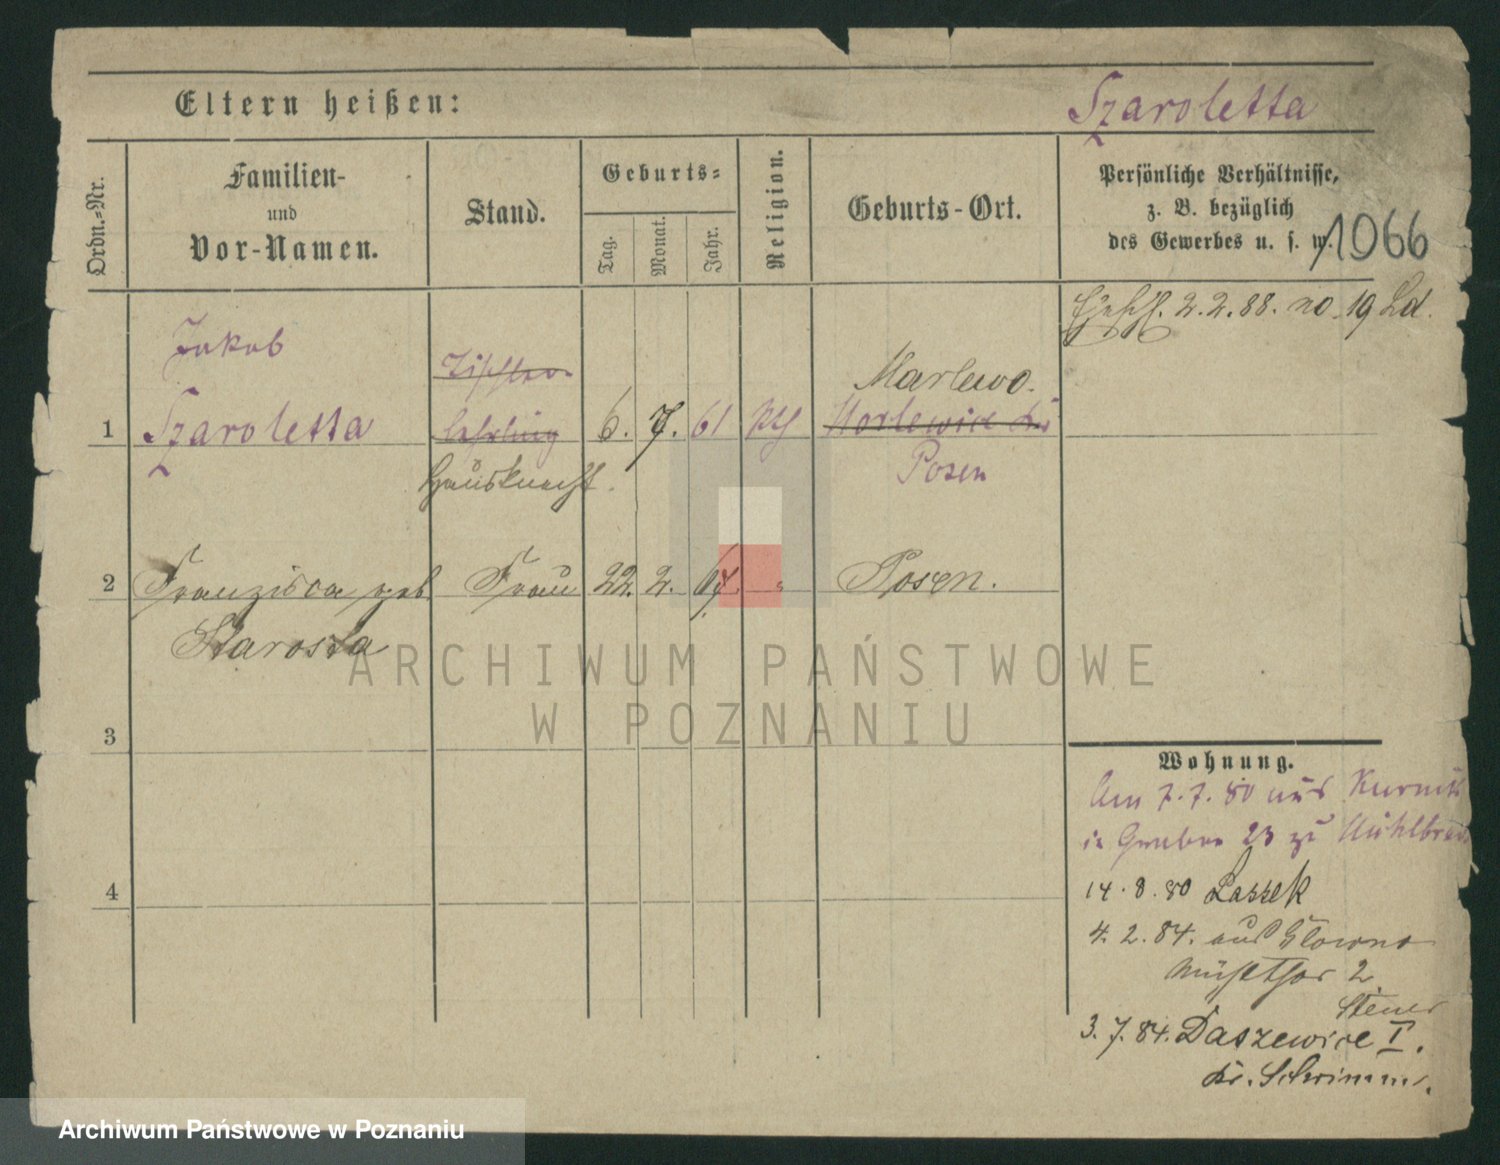 Eltern heißen:
Szaroletta
Ordn.=Nr.
Familien-
und
Vor-Namen.
Stand.
Geburts=
Tag.
Monat.
Jahr.
Religion.
Geburts-Ort.
Persönliche Verhältnisse,
z. B. bezüglich
des Gewerbes u. s. w.
1066
2.2.88. no. 19 Ld.
Jakob
Tischler
Marlewo.
1 Szaroletta Lehrling 6. 7. 61 Kth
Posen
Hausknecht.
2 Franzisca geb. Frau 22. 2. Posen.
Starosta
ARCHIWUM PAŃSTWOWE
W POZNANIU
3
Wohnung.
Am 7.7.80 aus Kurnik
in Graben 23 zu Mühlbrad
4
14.8.80 Laszek
4.2.84. aus Głowno
Mühlthor 2
3.7.84. Daszewice I.
Kr. Schrimm.
Archiwum Państwowe w Poznaniu